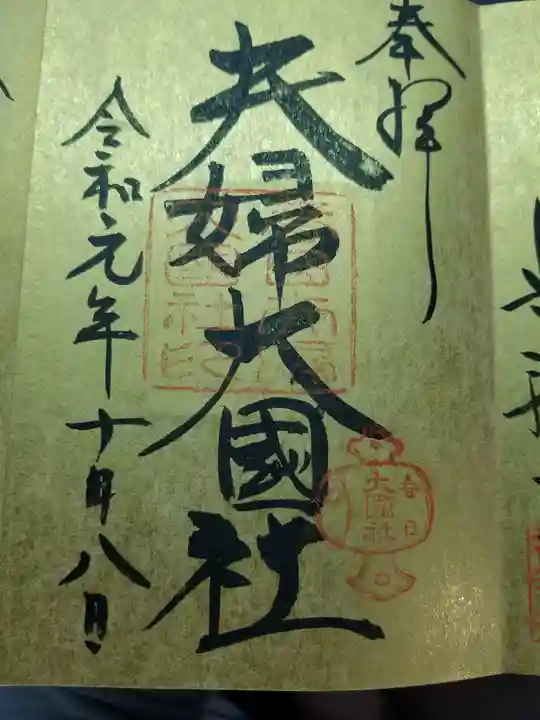 奉拝
夫婦大國社
春日
大国社
令和元年十月八日